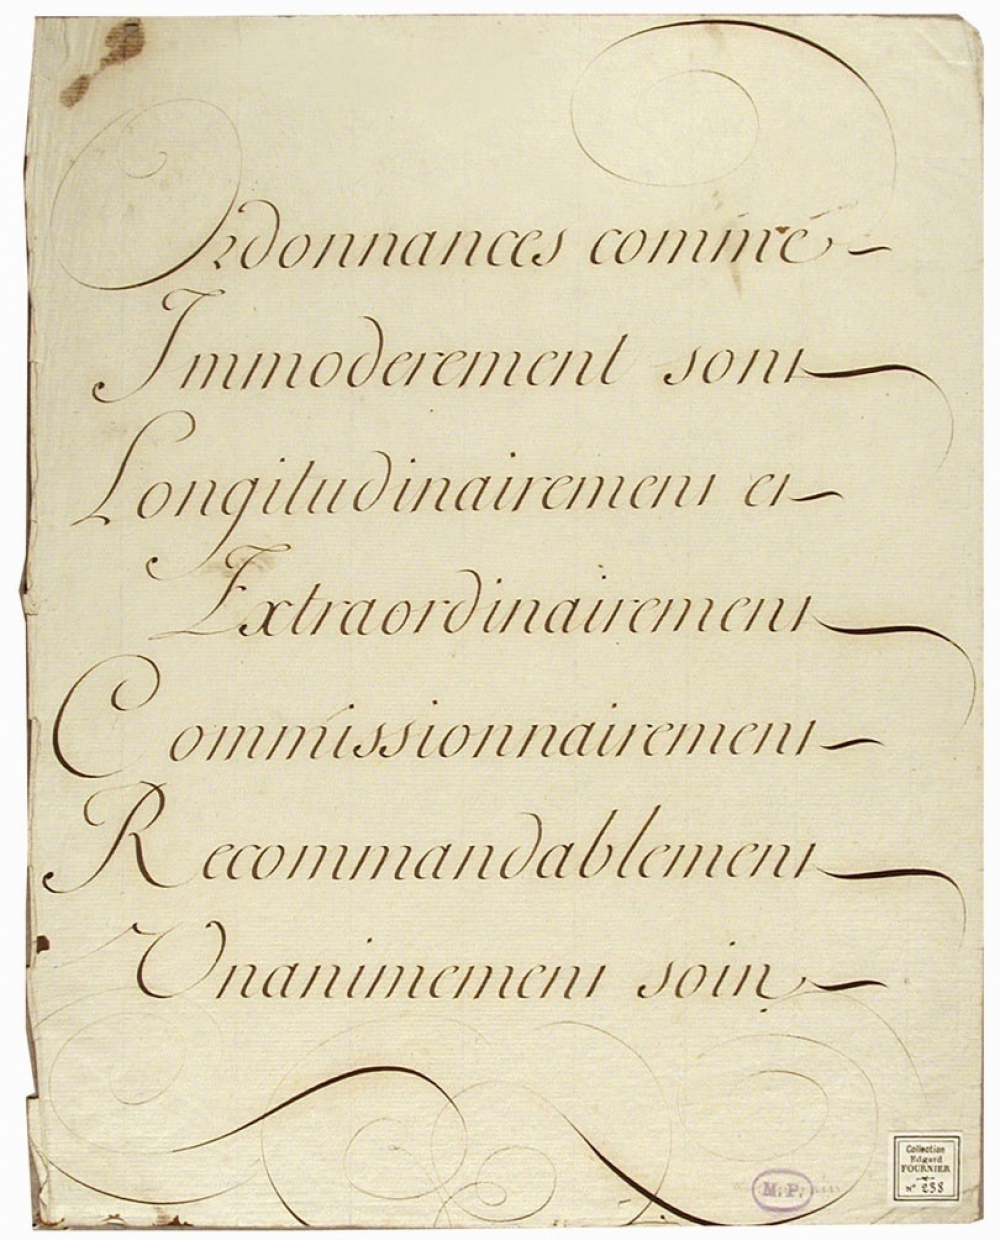 Ordonnances comme
Immoderement sont
Longitudinairement et
Extraordinairement
Commissionnairement
Recommandablement
Unanimement soin
M. P.
Collection
Edgard
FOURNIER
N° 238